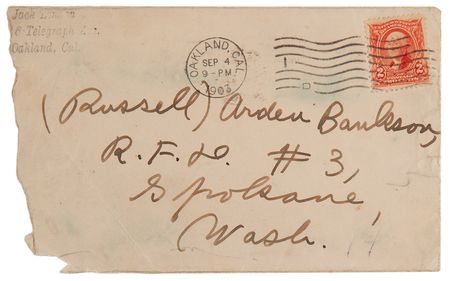 Jack
Telegraph Av.
Oakland, Cal.
OAKLAND, CAL.
SEP 4
9-PM
1905
D
2 2
(Russell) Arden Bankson,
R.F.D. #3,
Spokane,
Wash.